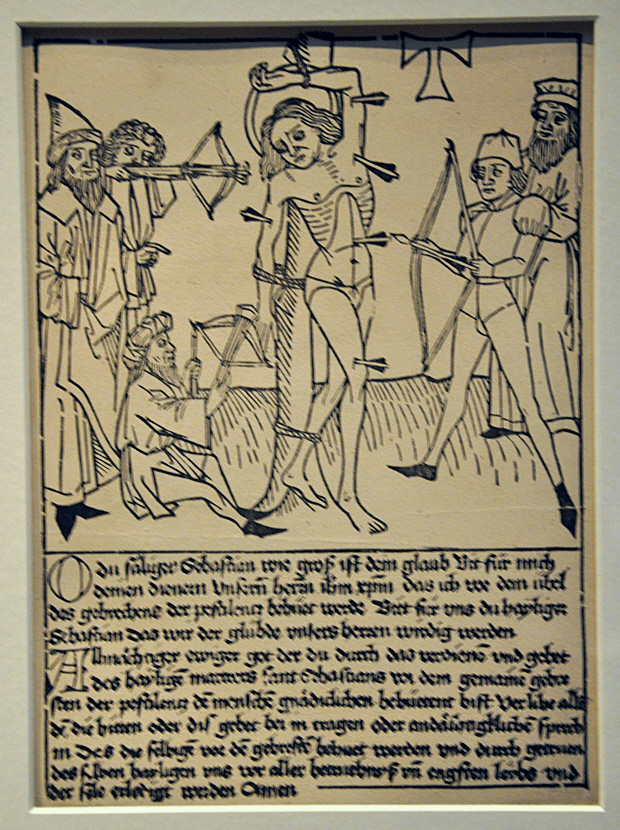 O du säliger Sebastian wie groß ist dein glaub Bit für mich
deinen dienern Unsern herrn ihm xpm das ich vor dem übel
des gebrechens der pestilentz behüet werde Bitt für uns du hayliger
Sebastian Das wir der glübde unsers herren wirdig werden
Allmächtiger ewiger got der du durch das verdienen und gebet
des hayligē martrers sant Sebastians vor dem gemainē gebre
sten der pestilentz dē menschē gnädiclichen behüetent bist Verlihe allē
dē die bitten oder diß gebet bei in tragen oder andächtigklichē sprech
in Des die selbigē vor dē gebrestē behüet werden und durch getruen
des selben hayligen uns vor aller betruebnuß uñ engsten leibs und
der sele erlediget werden Amen